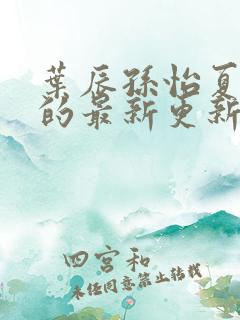 葉辰孫怡夏
的最新更新
四宮和
未经同意禁止转载